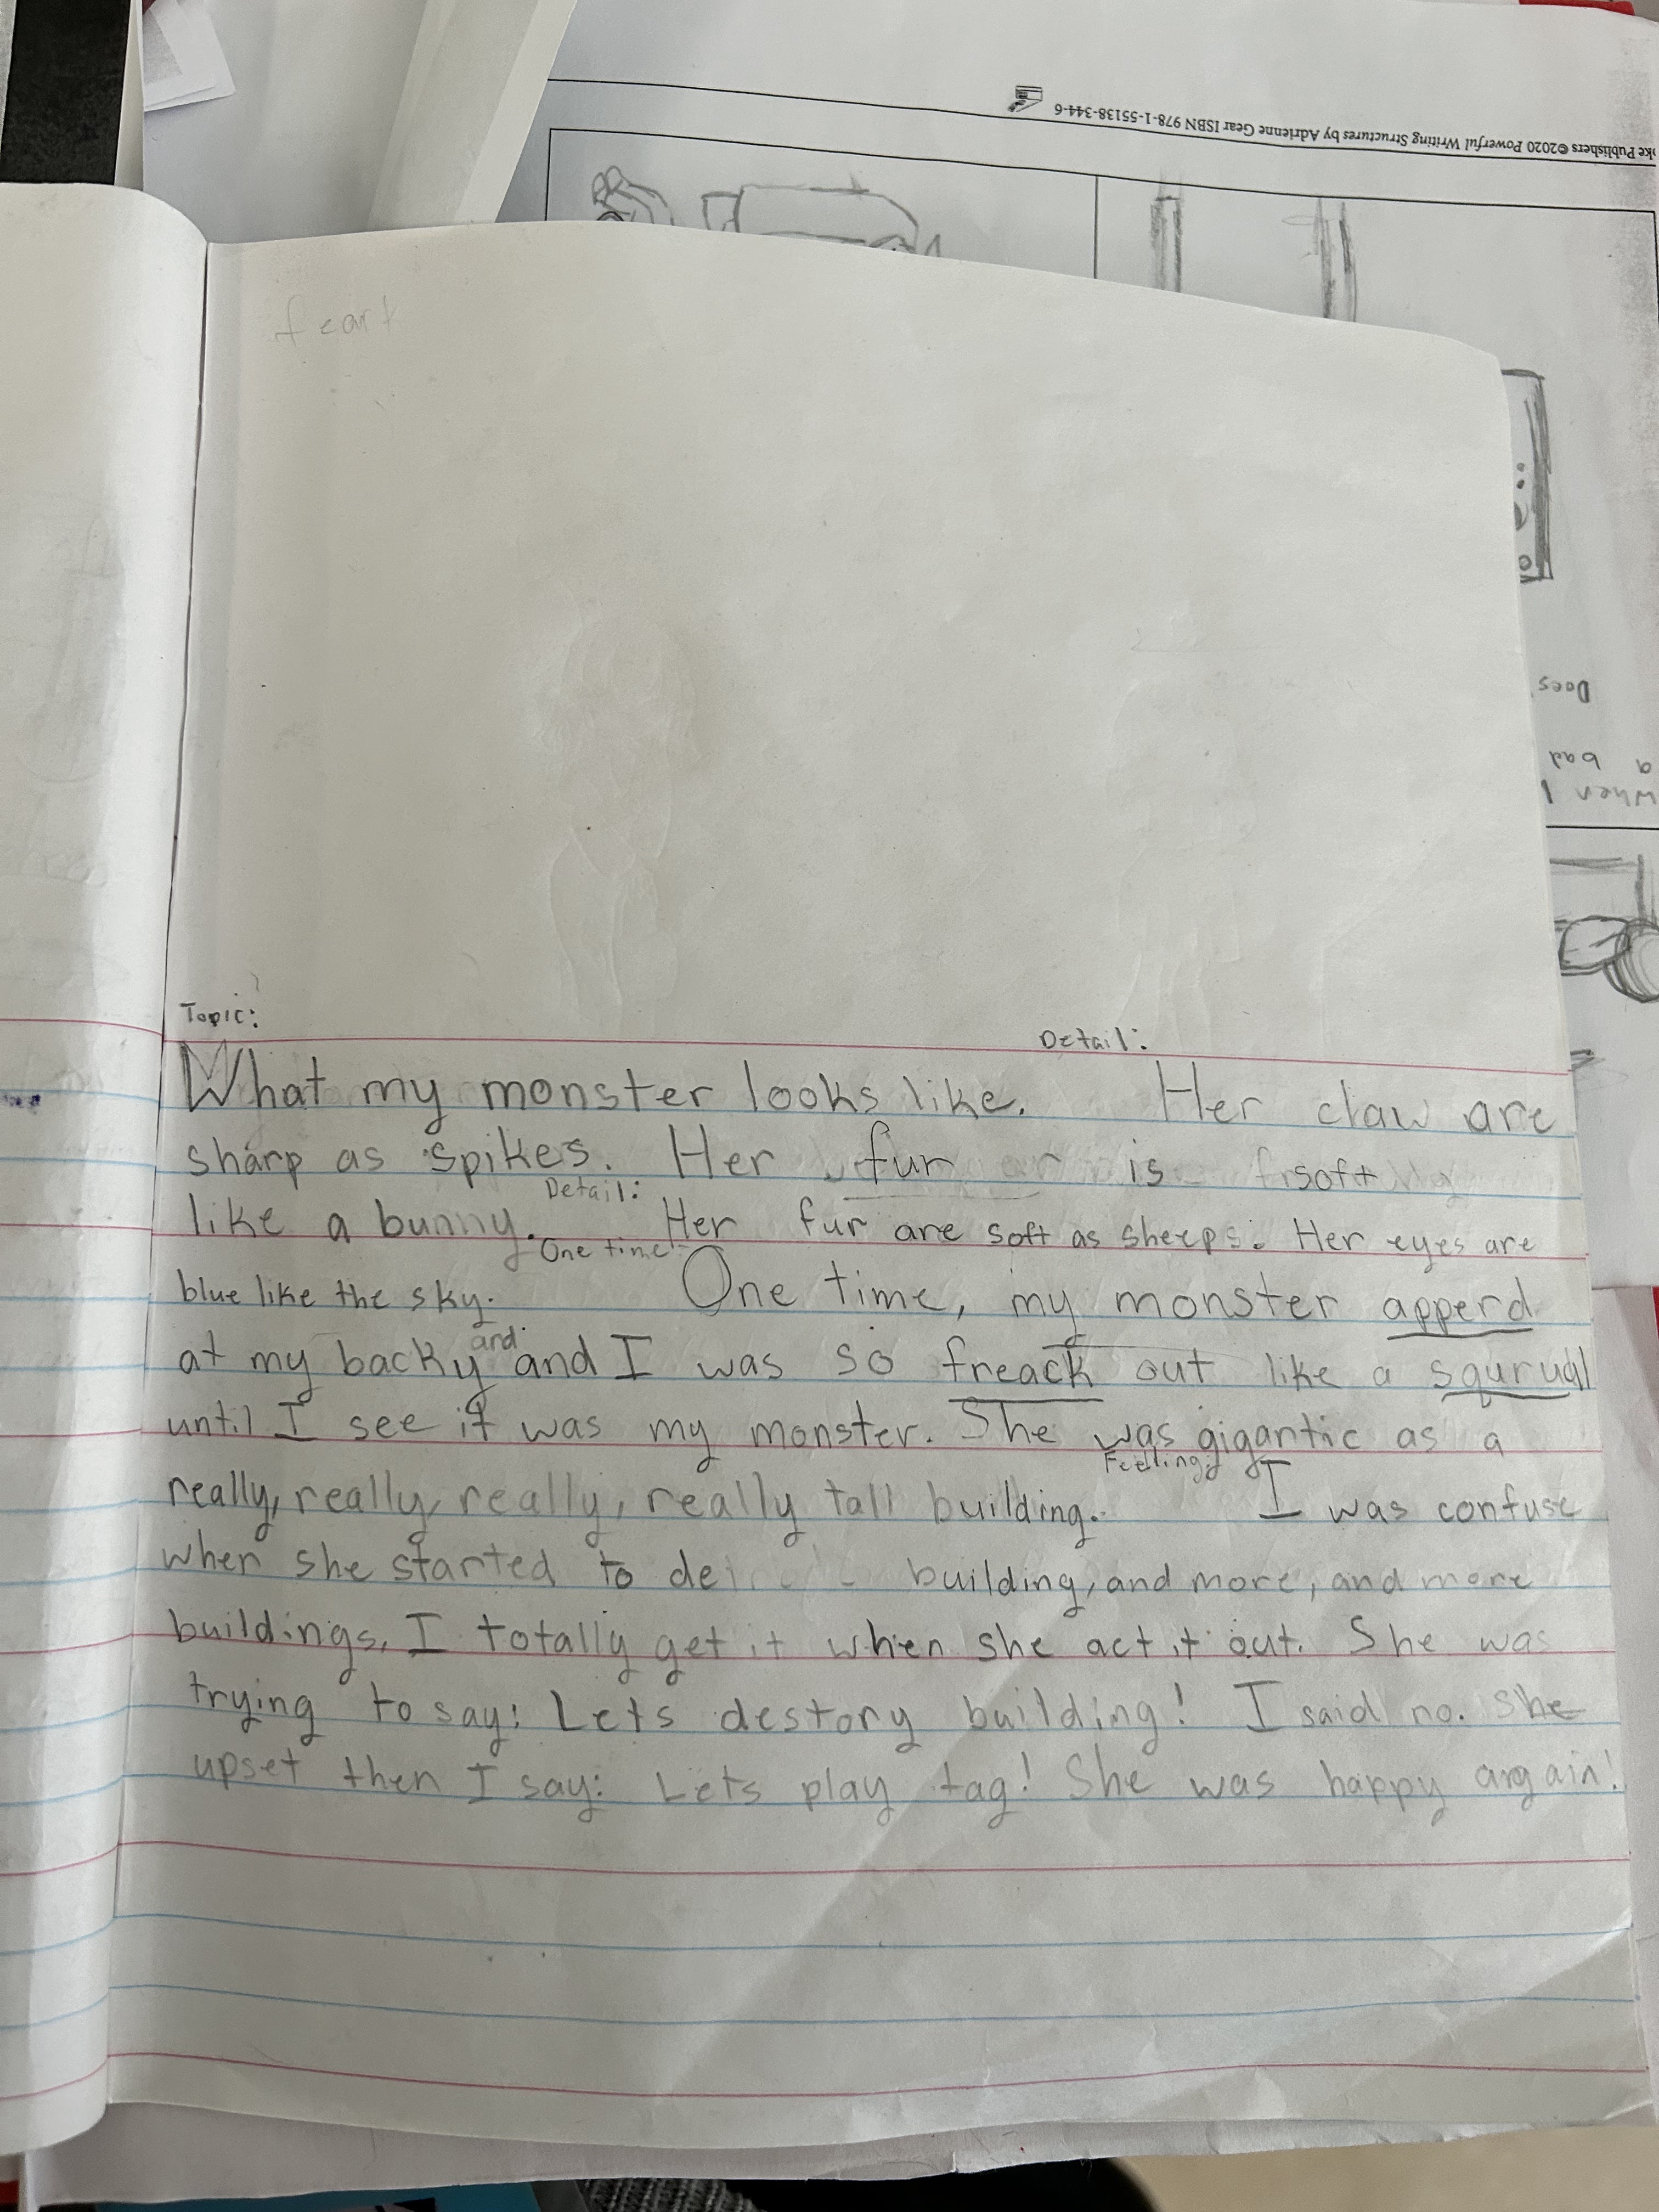 oke Publishers ©2020 Powerful Writing Structures by Adrienne Gear ISBN 978-1-55138-344-6
Does
a bad
when I
Topic:
Detail:
What my monster looks like. Her claw are
sharp as spikes. Her fur is soft
Detail:
like a bunny. Her fur are soft as sheeps. Her eyes are
One time:
blue like the sky. One time, my monster apperd
and
at my backy and I was so freack out like a squrual
until I see it was my monster. She was gigantic as a
Feeling:
really, really, really, really tall building. I was confuse
when she started to building, and more, and more
buildings. I totally get it when she act it out. She was
trying to say: Lets destory building! I said no. She
upset then I say: Lets play tag! She was happy argain!